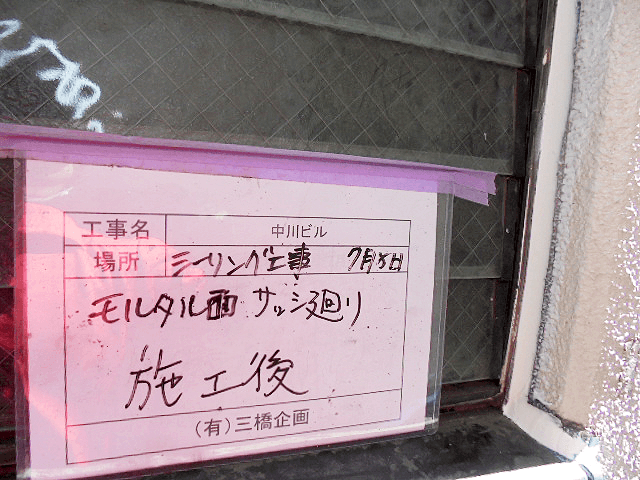 工事名 中川ビル
場所 シーリング工事 7月8日
モルタル面 サッシ廻り
施工後
(有)三橋企画